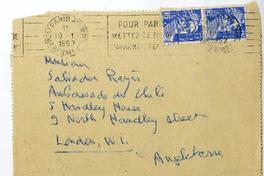 19-1
1953
POUR PAR
METTEZ
Monsieur
Salvador Reyes
Ambassade du Chile
5 Handley House
9 North Handley Street
London, W.1.
Angleterre